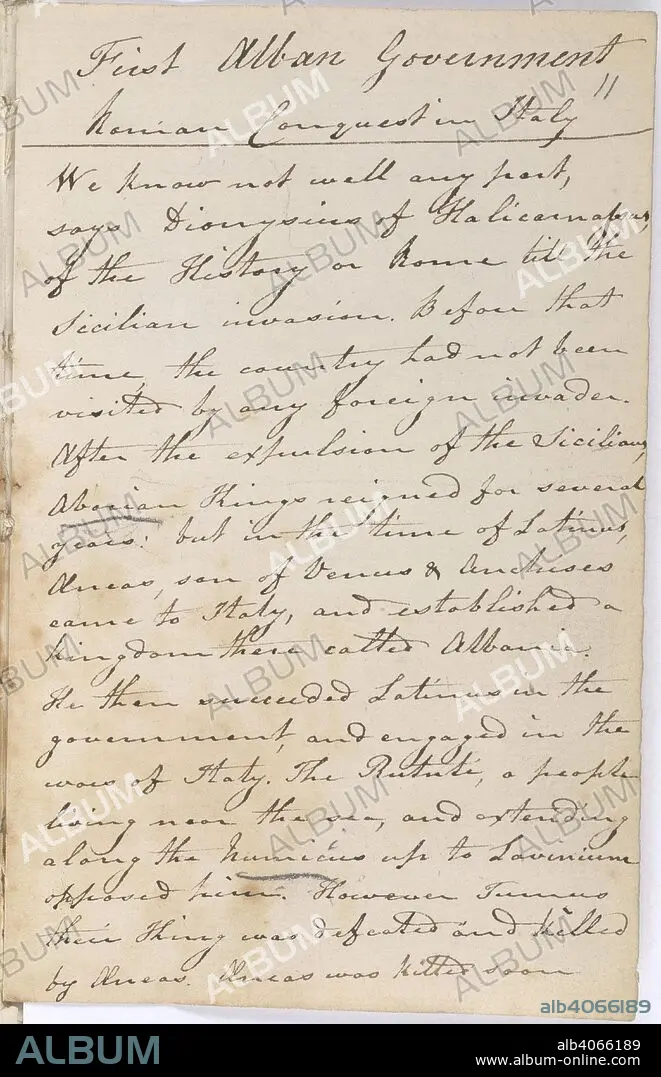 First Alban Government
11
Roman Conquest in Italy
We know not well any part,
says Dionysius of Halicarnassus,
of the History or Rome till the
Sicilian invasion. Before that
time, the country had not been
visited by any foreign invader.
After the expulsion of the Sicilians,
Aborian Kings reigned for several
years: but in the time of Latinus,
Æneas, son of Venus & Anchises
came to Italy, and established a
kingdom there called Albania.
He then succeeded Latinus in the
government, and engaged in the
wars of Italy. The Rutuli, a people
living near the sea, and extending
along the Numicius up to Lavinium
opposed him. However Turnus
their King was defeated and killed
by Æneas. Æneas was killed soon
ALBUM
alb4066189
ALBUM
alb4066189
www.album-online.com